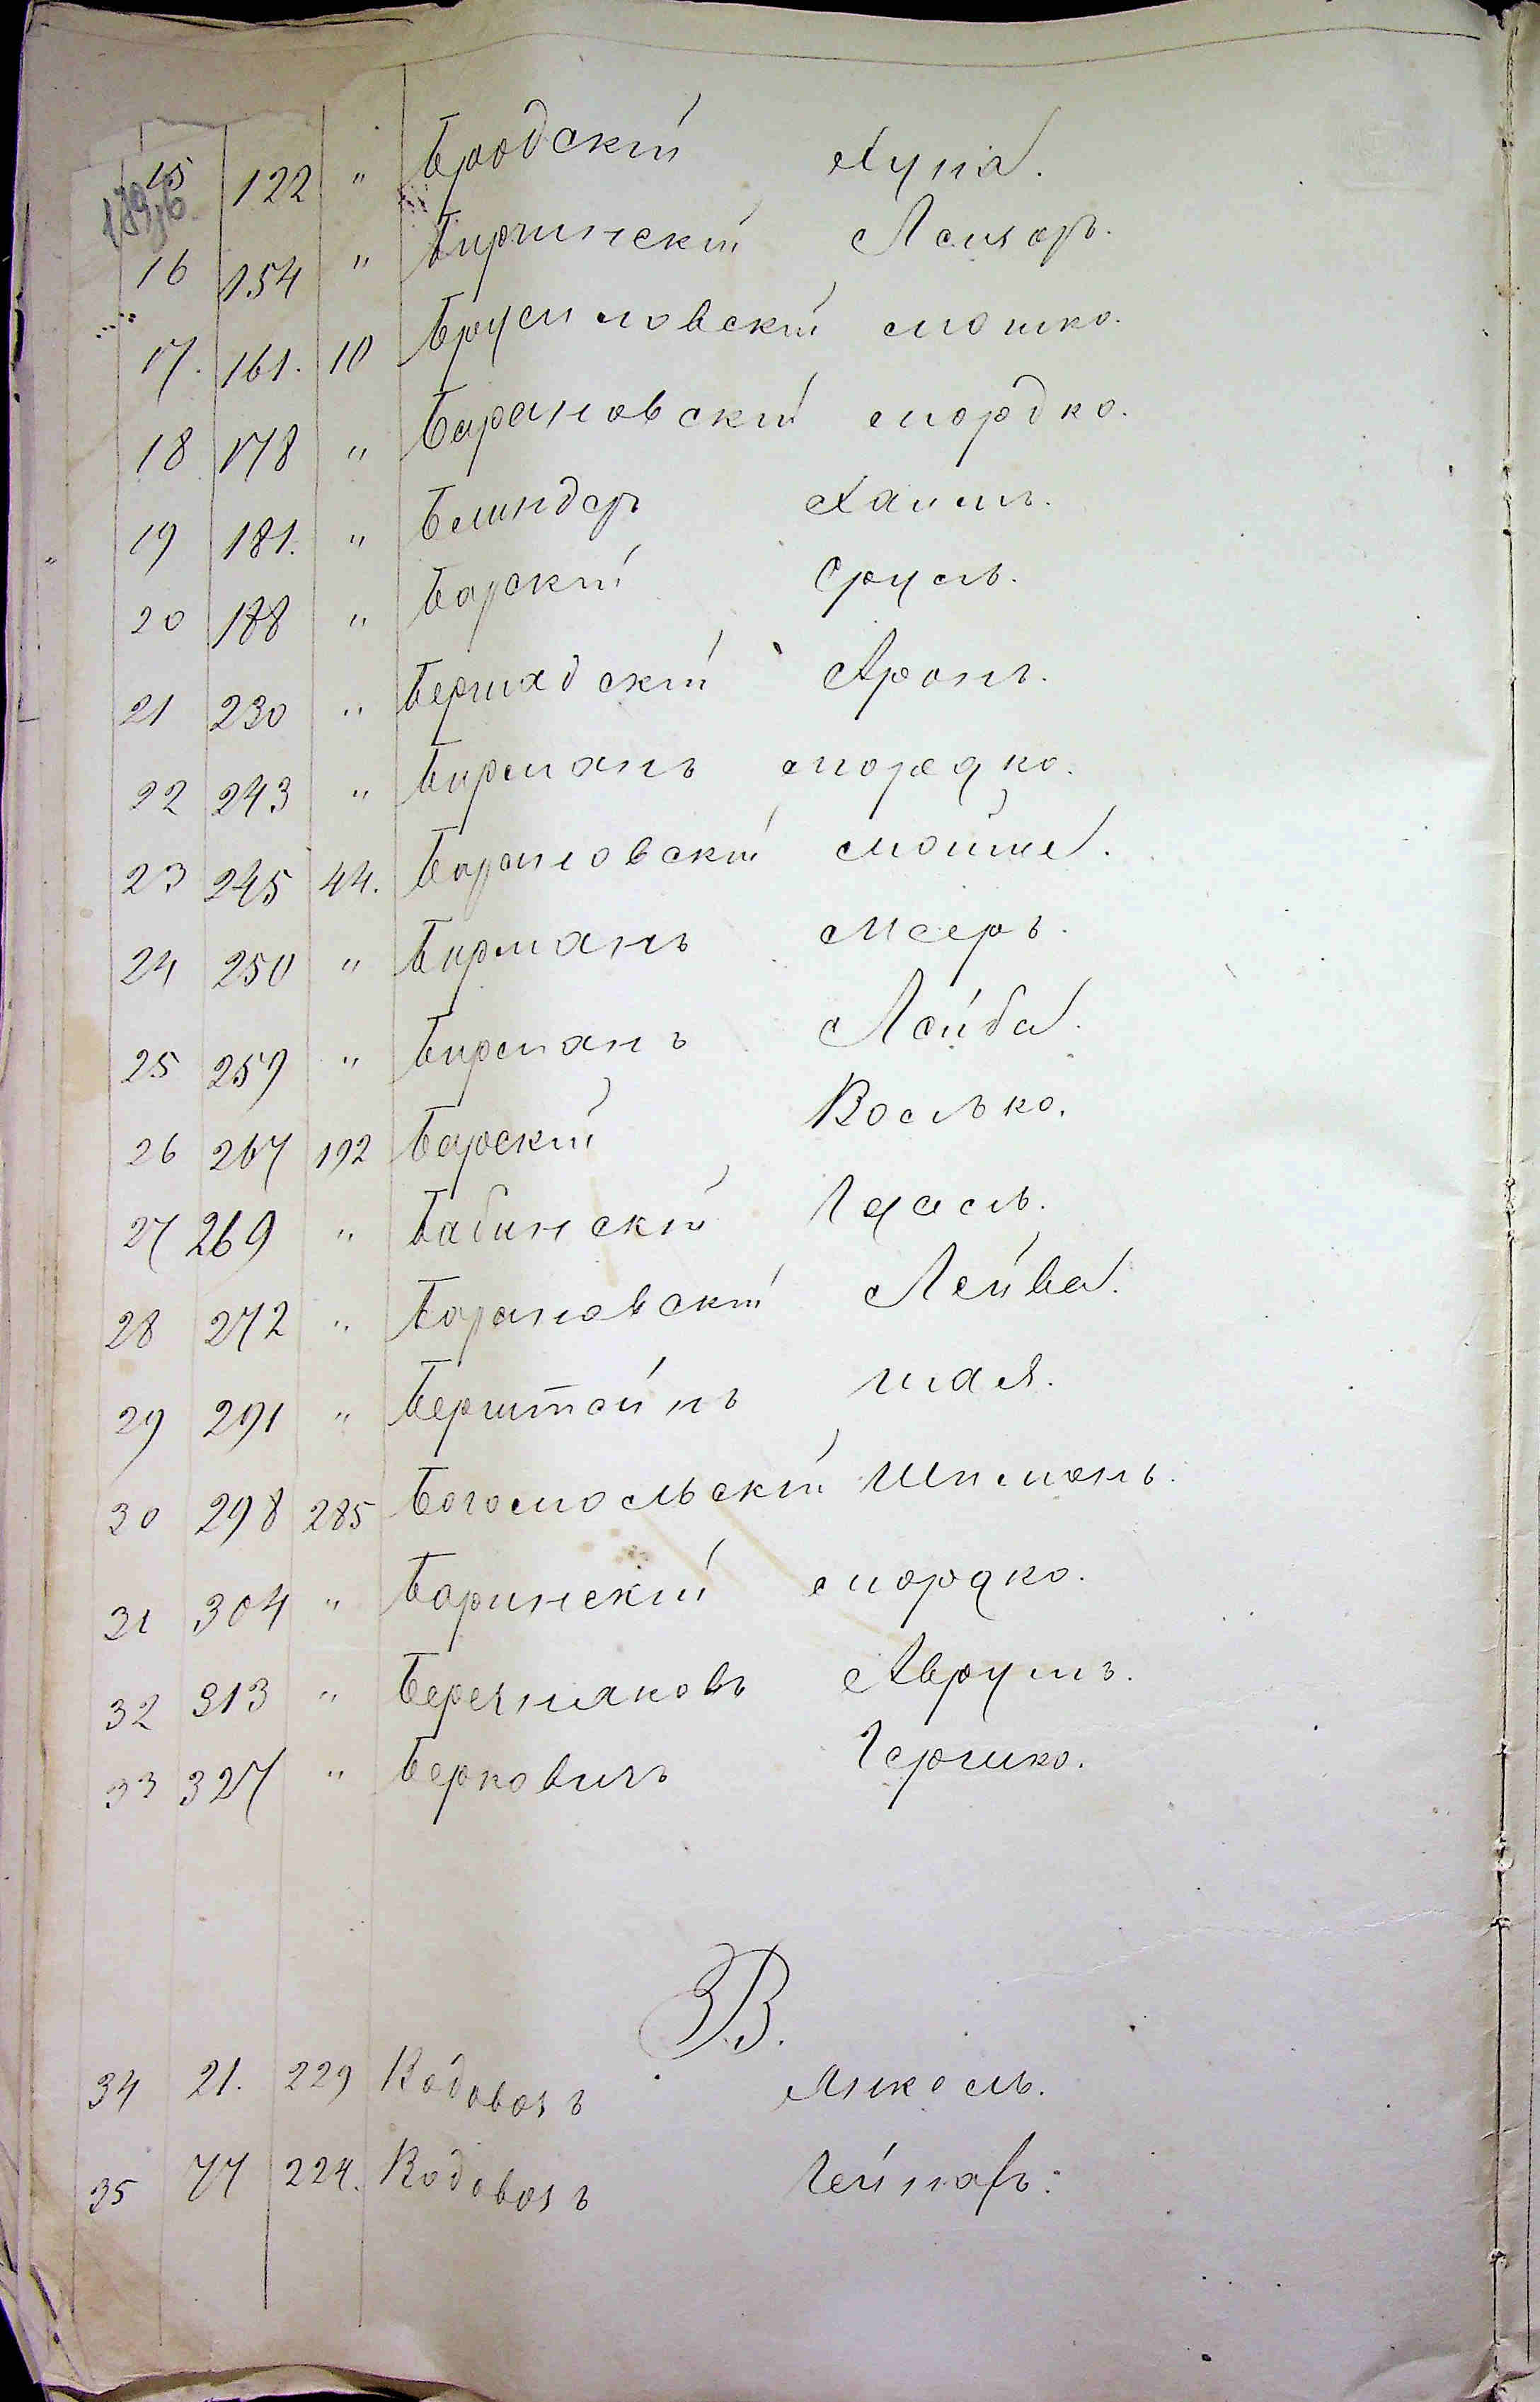 15 122 " Бродскій Хуна.
1896.
16 154 " Бирчинскій Лейзоръ.
17. 161. 10 Брусиловскій Мошко.
18 178 " Барановскій Мордко.
19 181. " Блиндеръ Хаимъ.
20 188 " Барскій Сруль.
21 230 " Бершадскій Аронъ.
22 243 " Бирманъ Мордко.
23 245 44. Барановскій Мойше.
24 250 " Бирманъ Мееръ.
25 259 " Бирманъ Лейба.
26 267 192 Барскій Волько.
27 269 " Бабинскій
28 272 " Барановскій Лейба.
29 291 " Берштейнъ Шая.
30 298 285 Богомольскій Шименъ.
31 304 " Баринскій Мордко.
32 313 " Березняковъ Аврумъ.
33 327 " Берковичъ Гершко.
В.
34 21. 229 Водовозъ Янкель.
35 77 224. Водовозъ